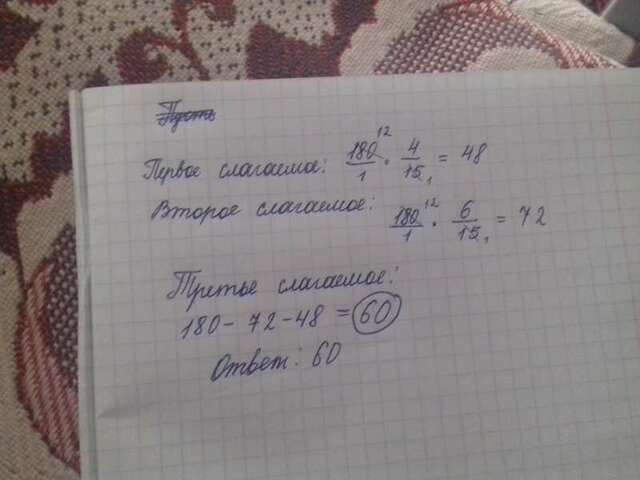 Пусть
Первое слагаемое: 180/1 12 · 4/15 1 = 48
Второе слагаемое: 180/1 12 · 6/15 1 = 72
Третье слагаемое:
180 - 72 - 48 = 60
Ответ: 60